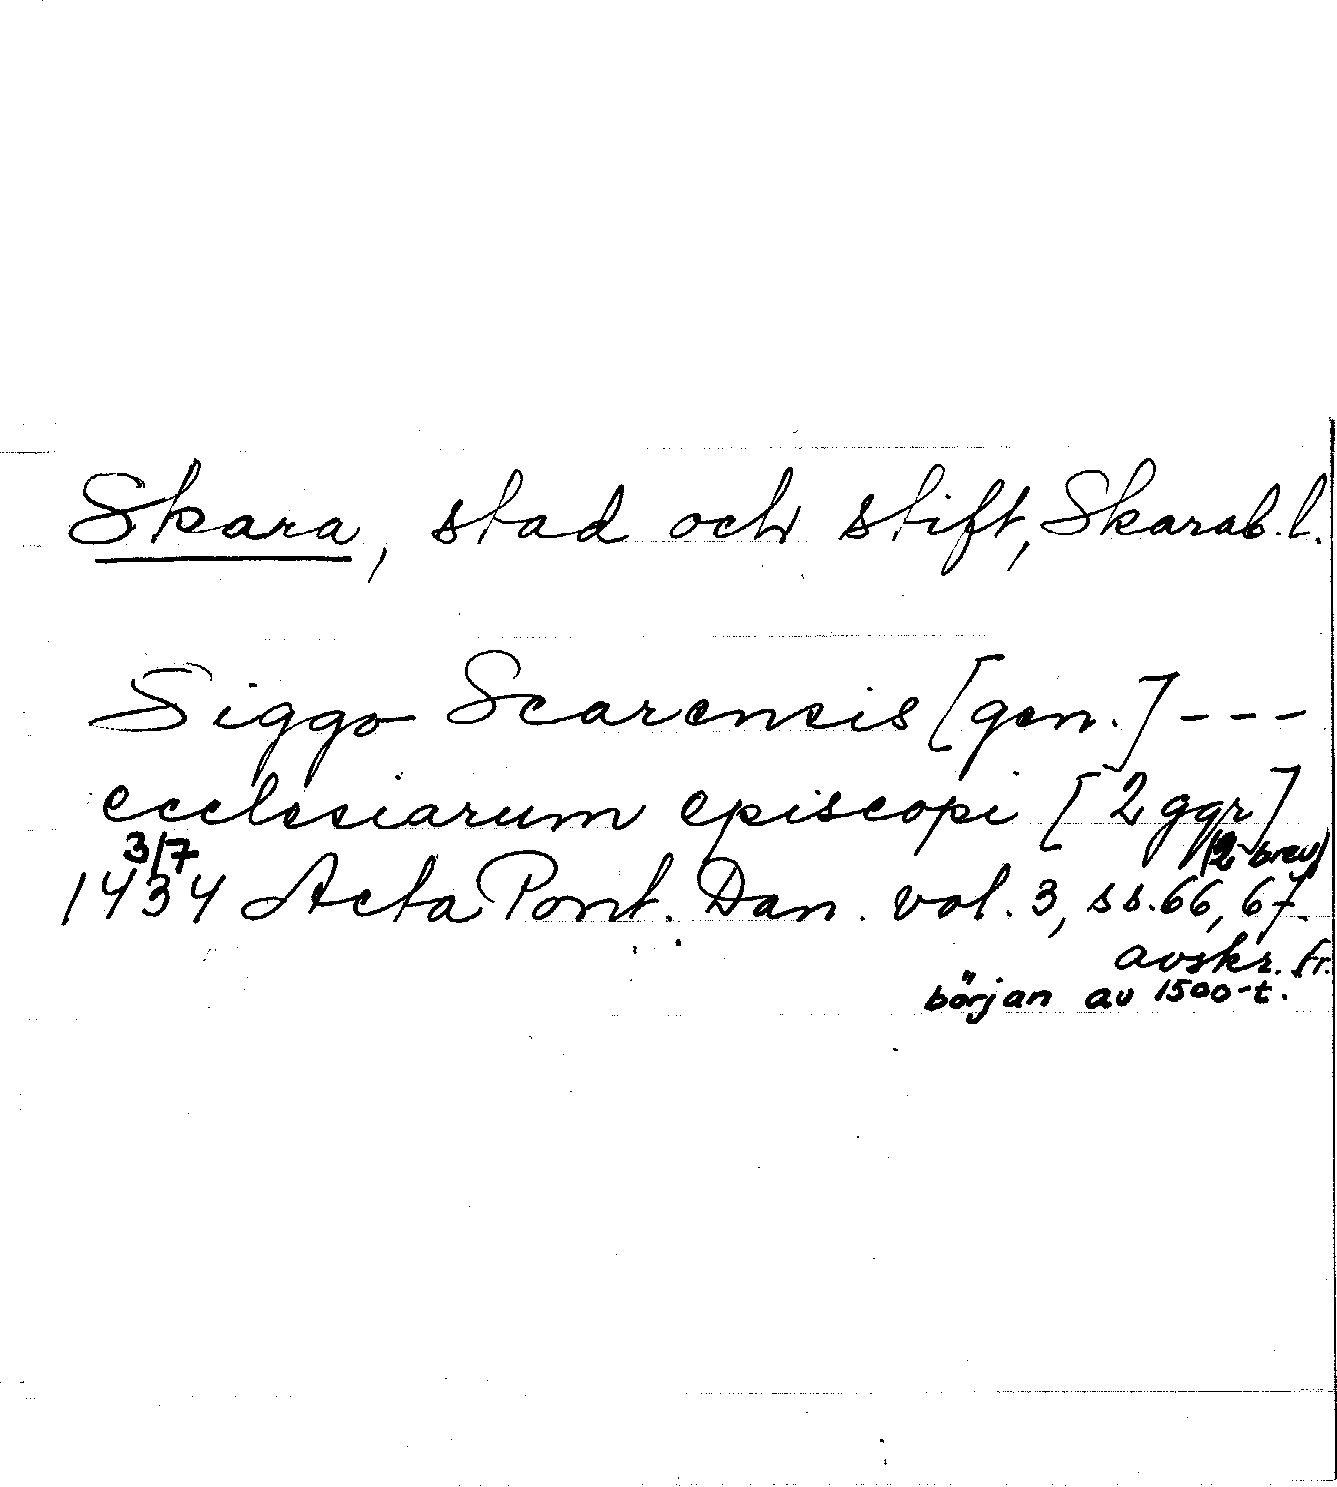 Skara, stad och stift, Skarab. l.
Siggo Scarensis [gen.] - - -
ecclesiarum episcopi [2 ggr]
3/7 (2 brev)
1434 Acta Pont. Dan. vol. 3, ss. 66, 67.
avskr. fr.
början av 1500-t.